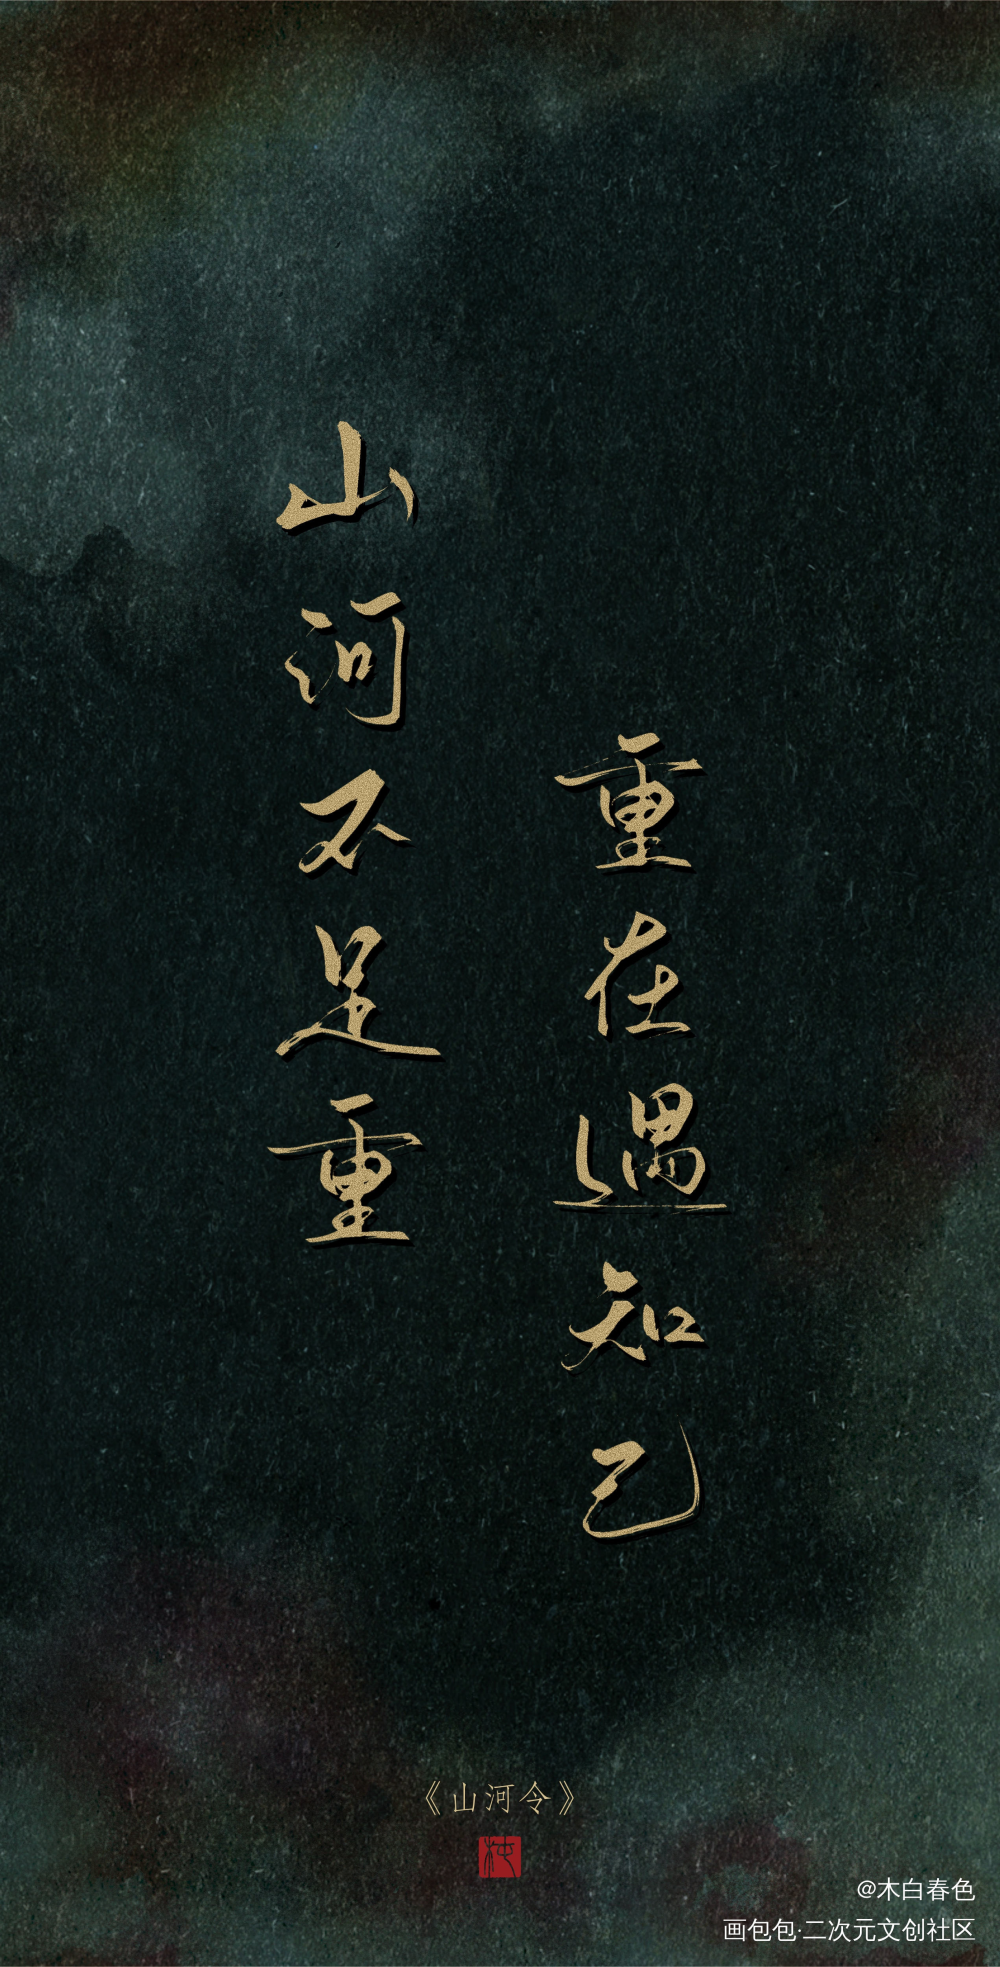 山河不足重
重在遇知己
《山河令》
@木白春色
画包包·二次元文创社区